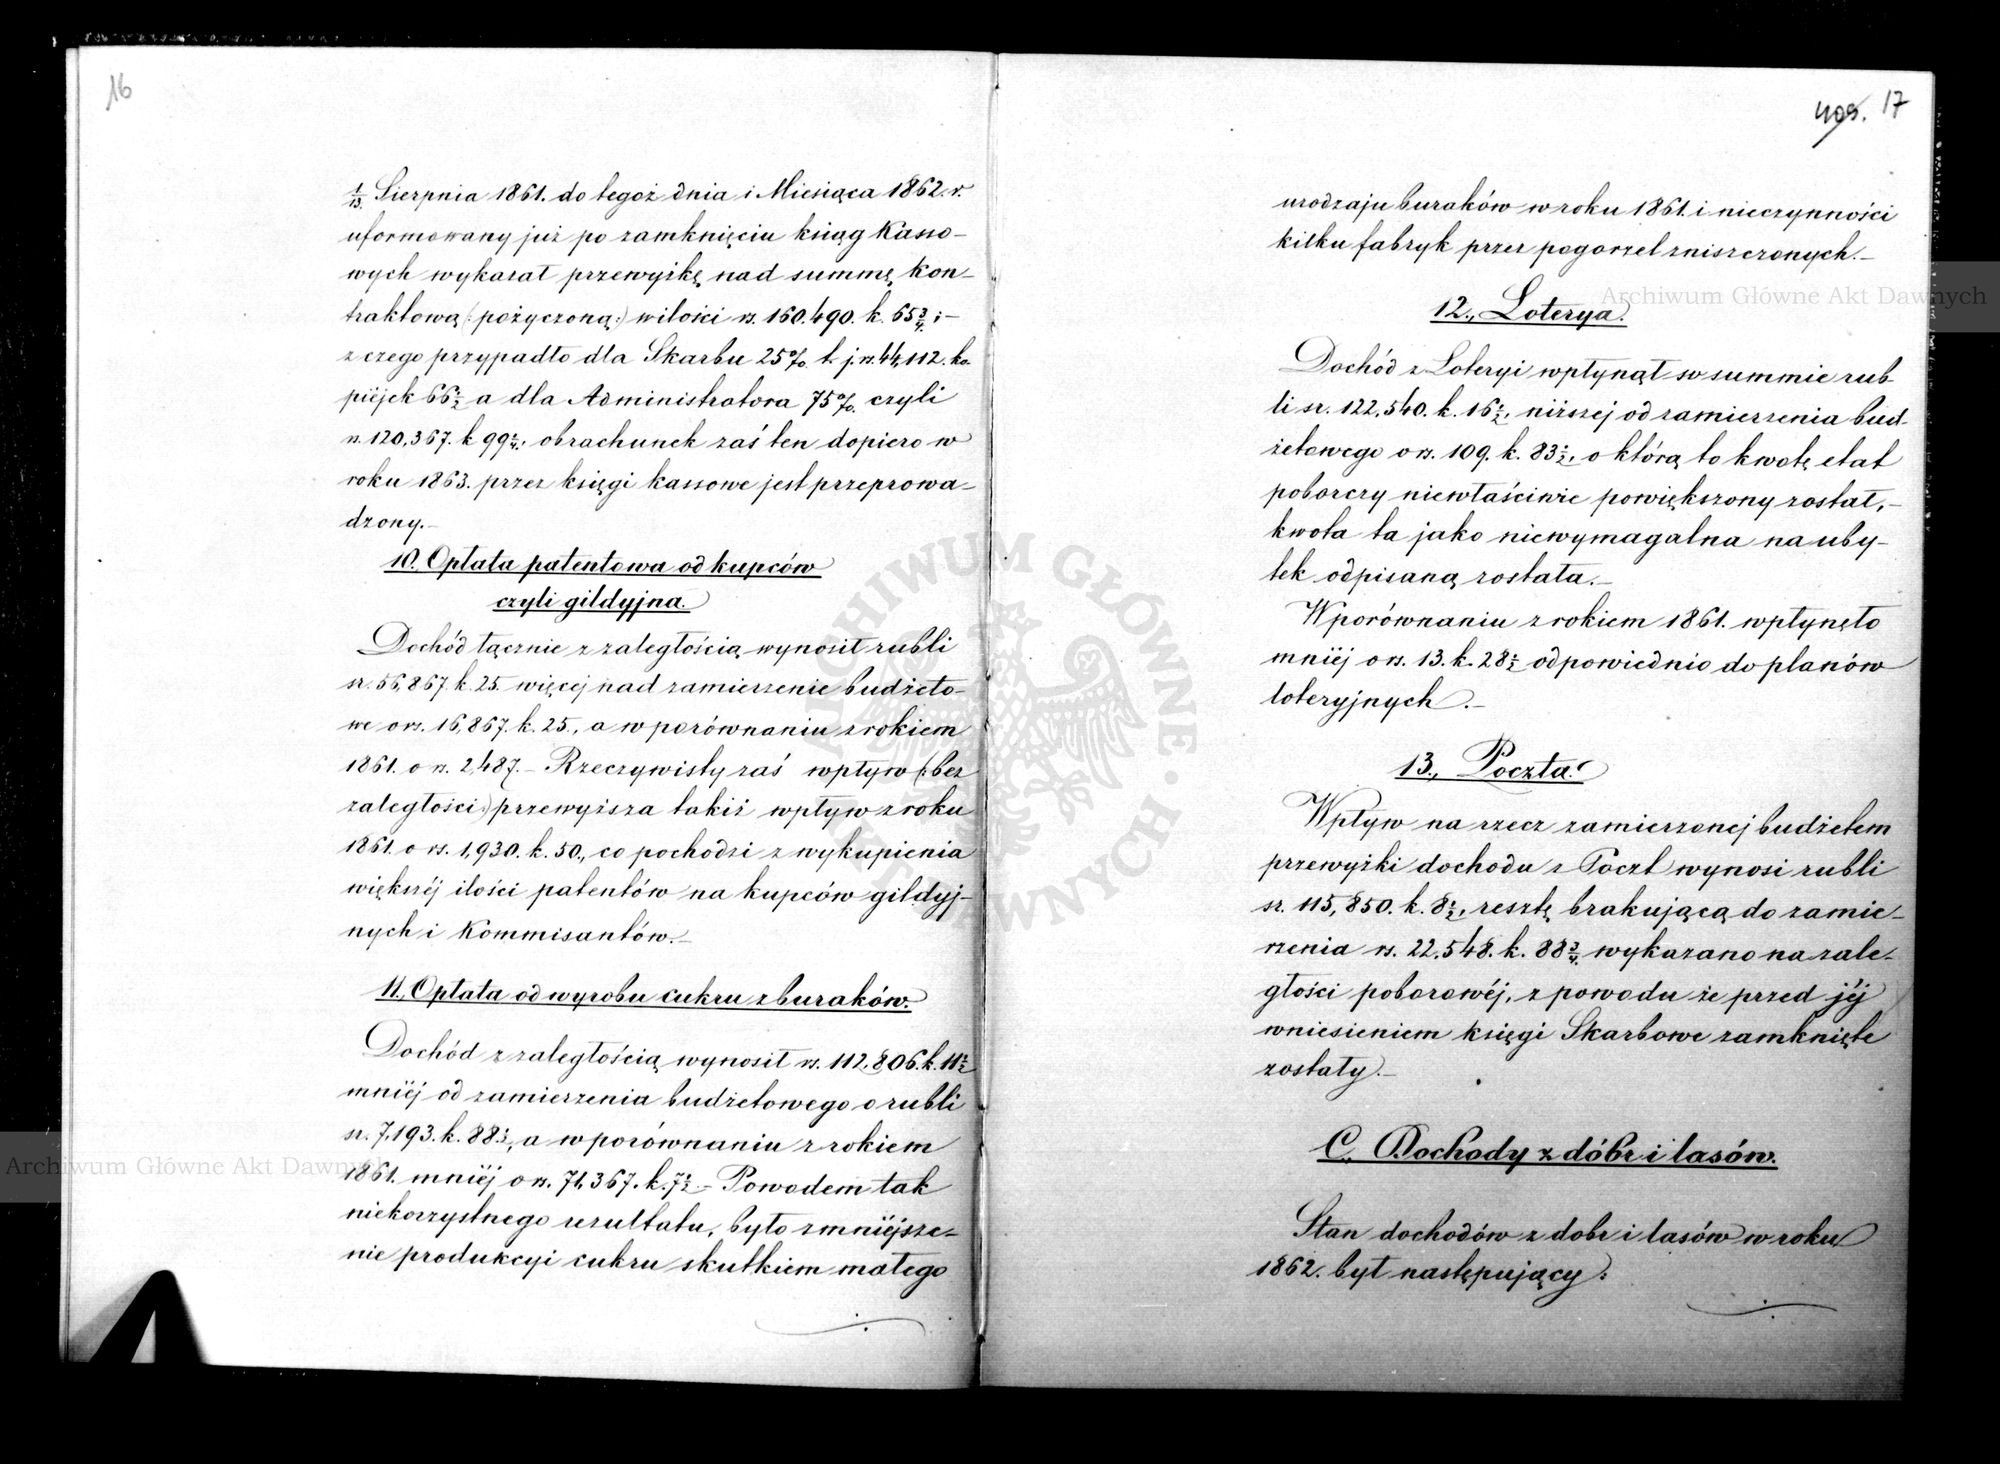 16
1/13. Sierpnia 1861. do tegoż dnia i Miesiąca 1862. r.
uformowany już po zamknięciu ksiąg Kasso-
wych wykazał przewyżkę nad summę kon-
traktową (: pożyczoną :) w ilości rs. 160.490. k. 65 3/4 ; -
z czego przypadło dla Skarbu 25% t. j. rs. 44,112. ko-
piéjek 66 1/2 a dla Administratora 75%. czyli
rs. 120,367. k. 99 1/4, obrachunek zaś ten dopiero w
roku 1863. przez księgi kassowe jest przeprowa-
dzony. -
10. Opłata patentowa od kupców
czyli gildyjna.
Dochód łącznie z zaległością wynosił rubli
sr. 56,867. k. 25. więcej nad zamierzenie budżeto-
we o rs. 16,867. k. 25., a w porównaniu z rokiem
1861. o rs. 2,487. - Rzeczywisty zaś wpływ (: bez
zaległości :) przewyższa takiż wpływ z roku
1861. o rs. 1,930. k. 50., co pochodzi z wykupienia
większéj ilości patentów na kupców gildyj-
nych i Kommisantów. -
11., Opłata od wyrobu cukru z buraków.
Dochód z zaległością wynosił rs. 112,806. k. 11 1/2
mniéj od zamierzenia budżetowego o rubli
sr. 7,193. k. 88 1/2, a w porównaniu z rokiem
1861. mniéj o rs. 71,367. k. 7 1/2. - Powodem tak
niekorzystnego rezultatu, było zmniéjsze-
nie produkcyi cukru skutkiem małego
409. 17
urodzaju buraków w roku 1861. i nieczynności
kilku fabryk przez pogorzel zniszczonych. -
12., Loterya.
Dochód z Loteryi wpłynął w summie rub
li sr. 122,540. k. 16 1/2, niższej od zamierzenia bud-
żetowego o rs. 109. k. 83 1/2, o którą to kwotę etat
poborczy niewłaściwie powiększony został, -
kwota ta jako niewymagalna na uby-
tek odpisaną została. -
W porównaniu z rokiem 1861. wpłynęło
mniéj o rs. 13. k. 28 1/2 odpowiednio do planów
loteryjnych. -
13., Poczta.
Wpływ na rzecz zamierzonej budżetem
przewyżki dochodu z Poczt wynosi rubli
sr. 115,850. k. 8 1/2, resztę brakującą do zamie-
rzenia rs. 22,548. k. 88 3/4. wykazano na zale-
głości poborowéj, z powodu że przed jéj
wniesieniem księgi Skarbowe zamknięte
zostały. -
C., Dochody z dóbr i lasów.
Stan dochodów z dobr i lasów w roku
1862. był następujący:
Archiwum Główne Akt Dawnych
Archiwum Główne Akt Dawnych
ARCHIWUM GŁÓWNE AKT DAWNYCH